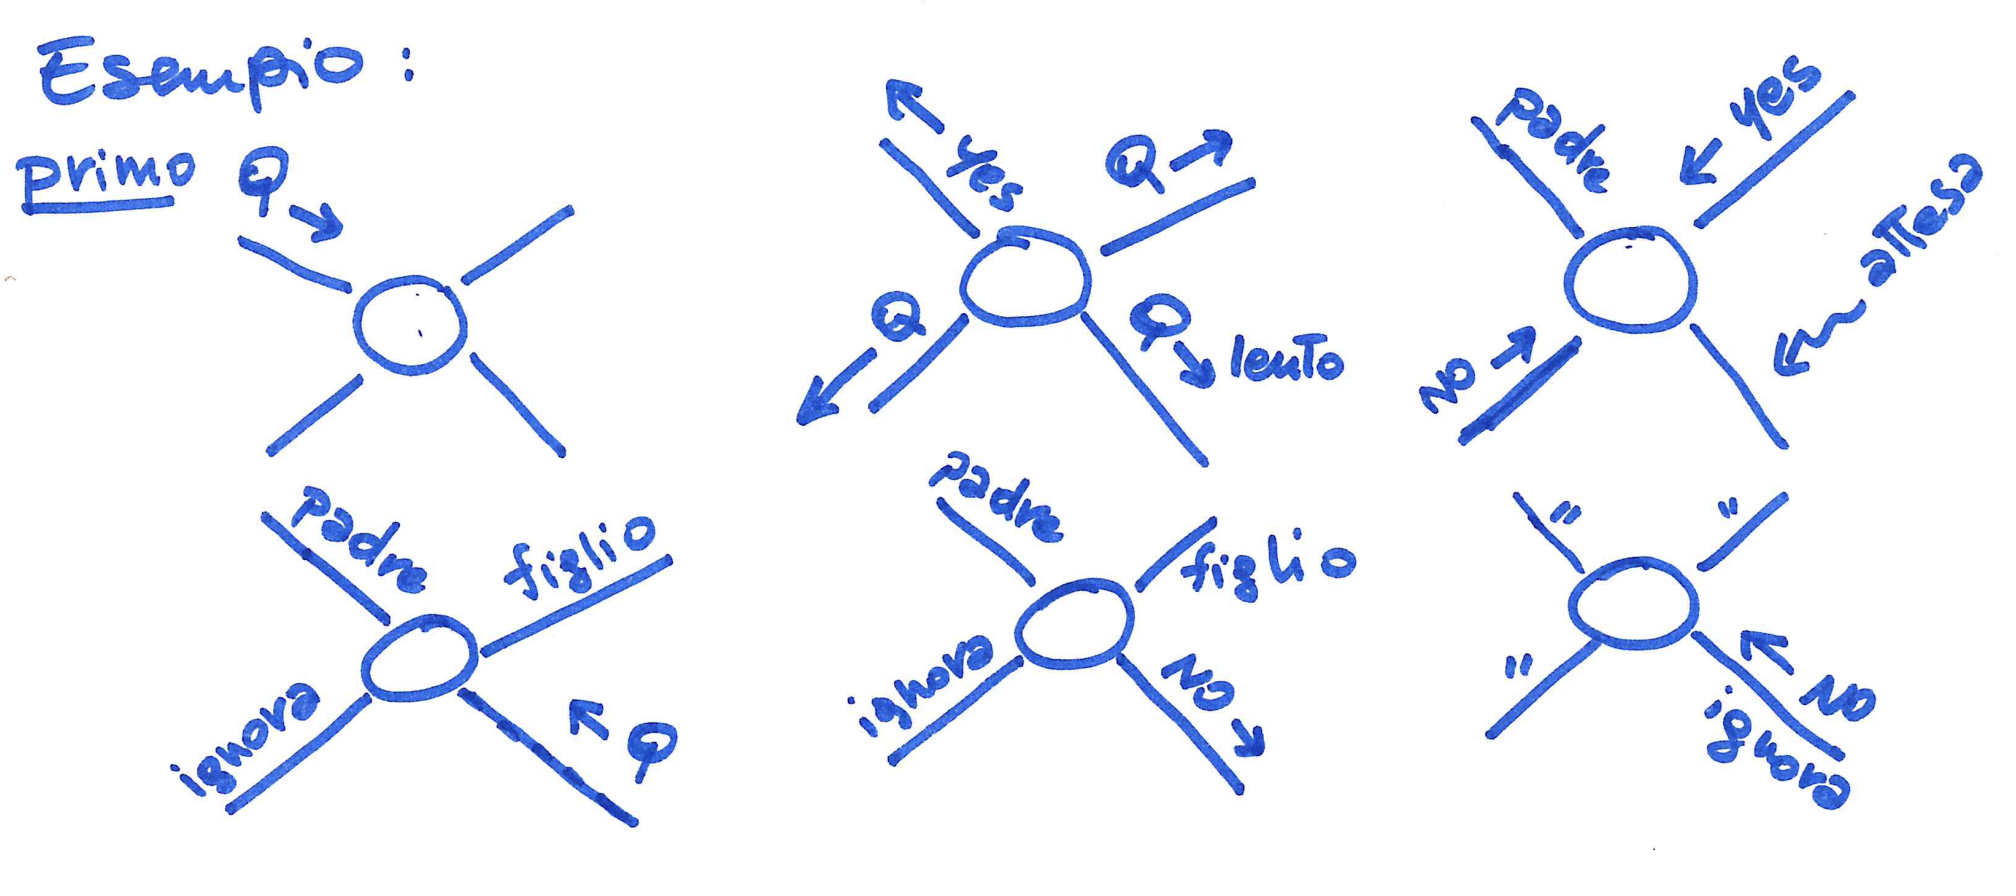 Esempio:
primo Q →
← Yes
Q →
Q
Q
→ lento
padre
← yes
← attesa
NO →
padre
figlio
ignora
← Q
padre
figlio
ignora
NO →
"
"
"
← NO
ignora